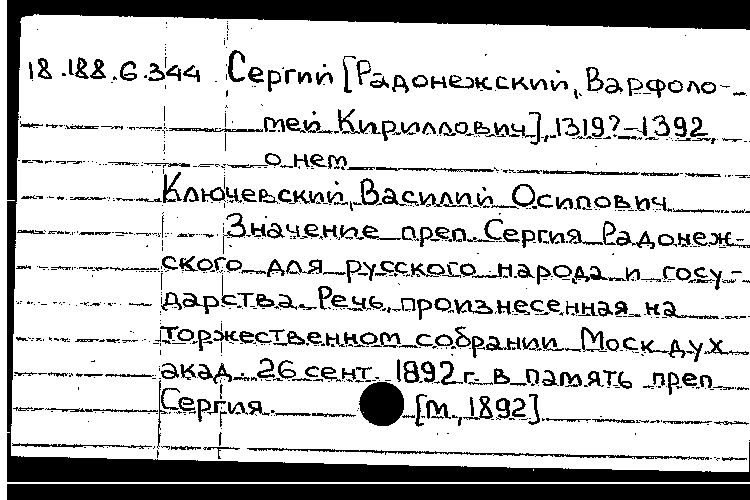 18.188.6.344 Сергий [Радонежский, Варфоло-
мей Кириллович], 1319?-1392,
о нем
Ключевский, Василий Осипович
Значение преп. Сергия Радонеж-
ского для русского народа и госу-
дарства. Речь, произнесенная на
торжественном собрании Моск. дух.
акад. 26 сент. 1892 г. в память преп.
Сергия. [М., 1892].